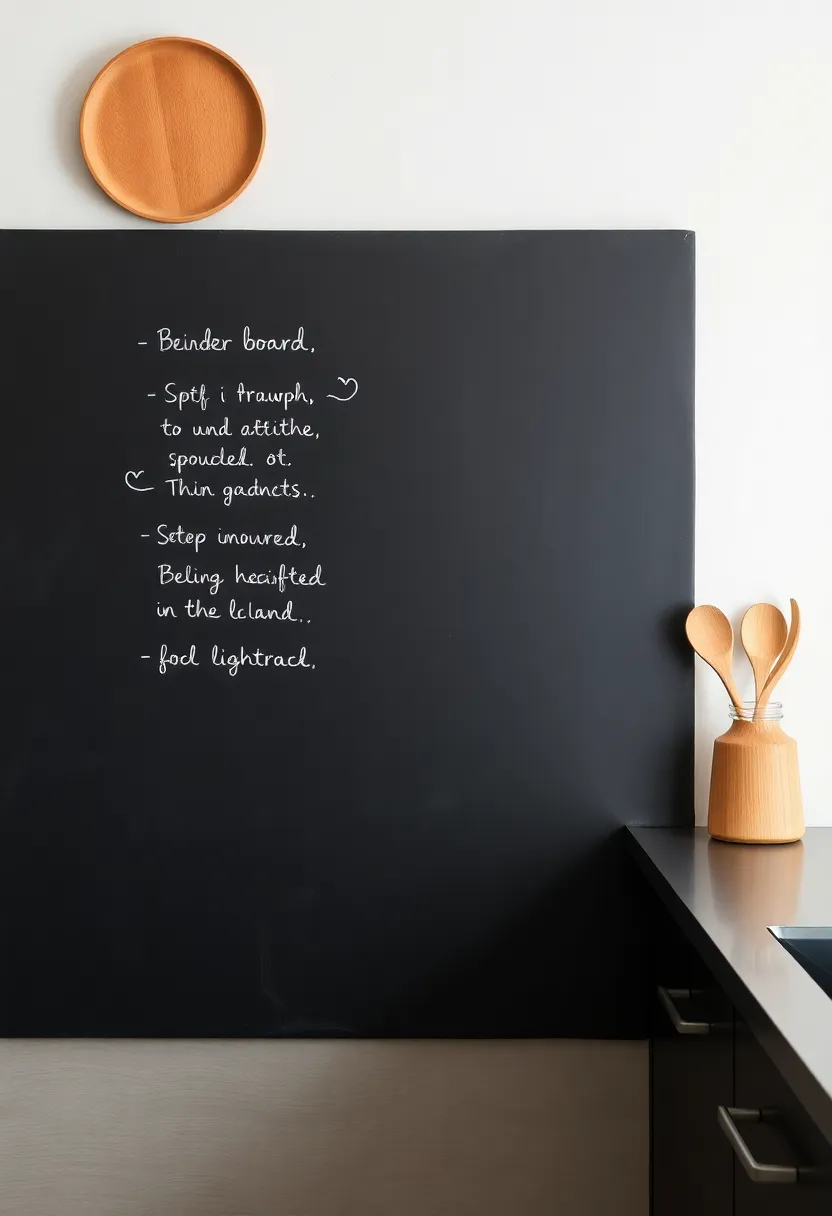 - Beinder board,
- Sptf i trawph,
to und attithe,
spoudel. ot.
Thin gadncts..
- Setep inoured,
Beling hecisfted
in the lcland..
- fod lightracd.